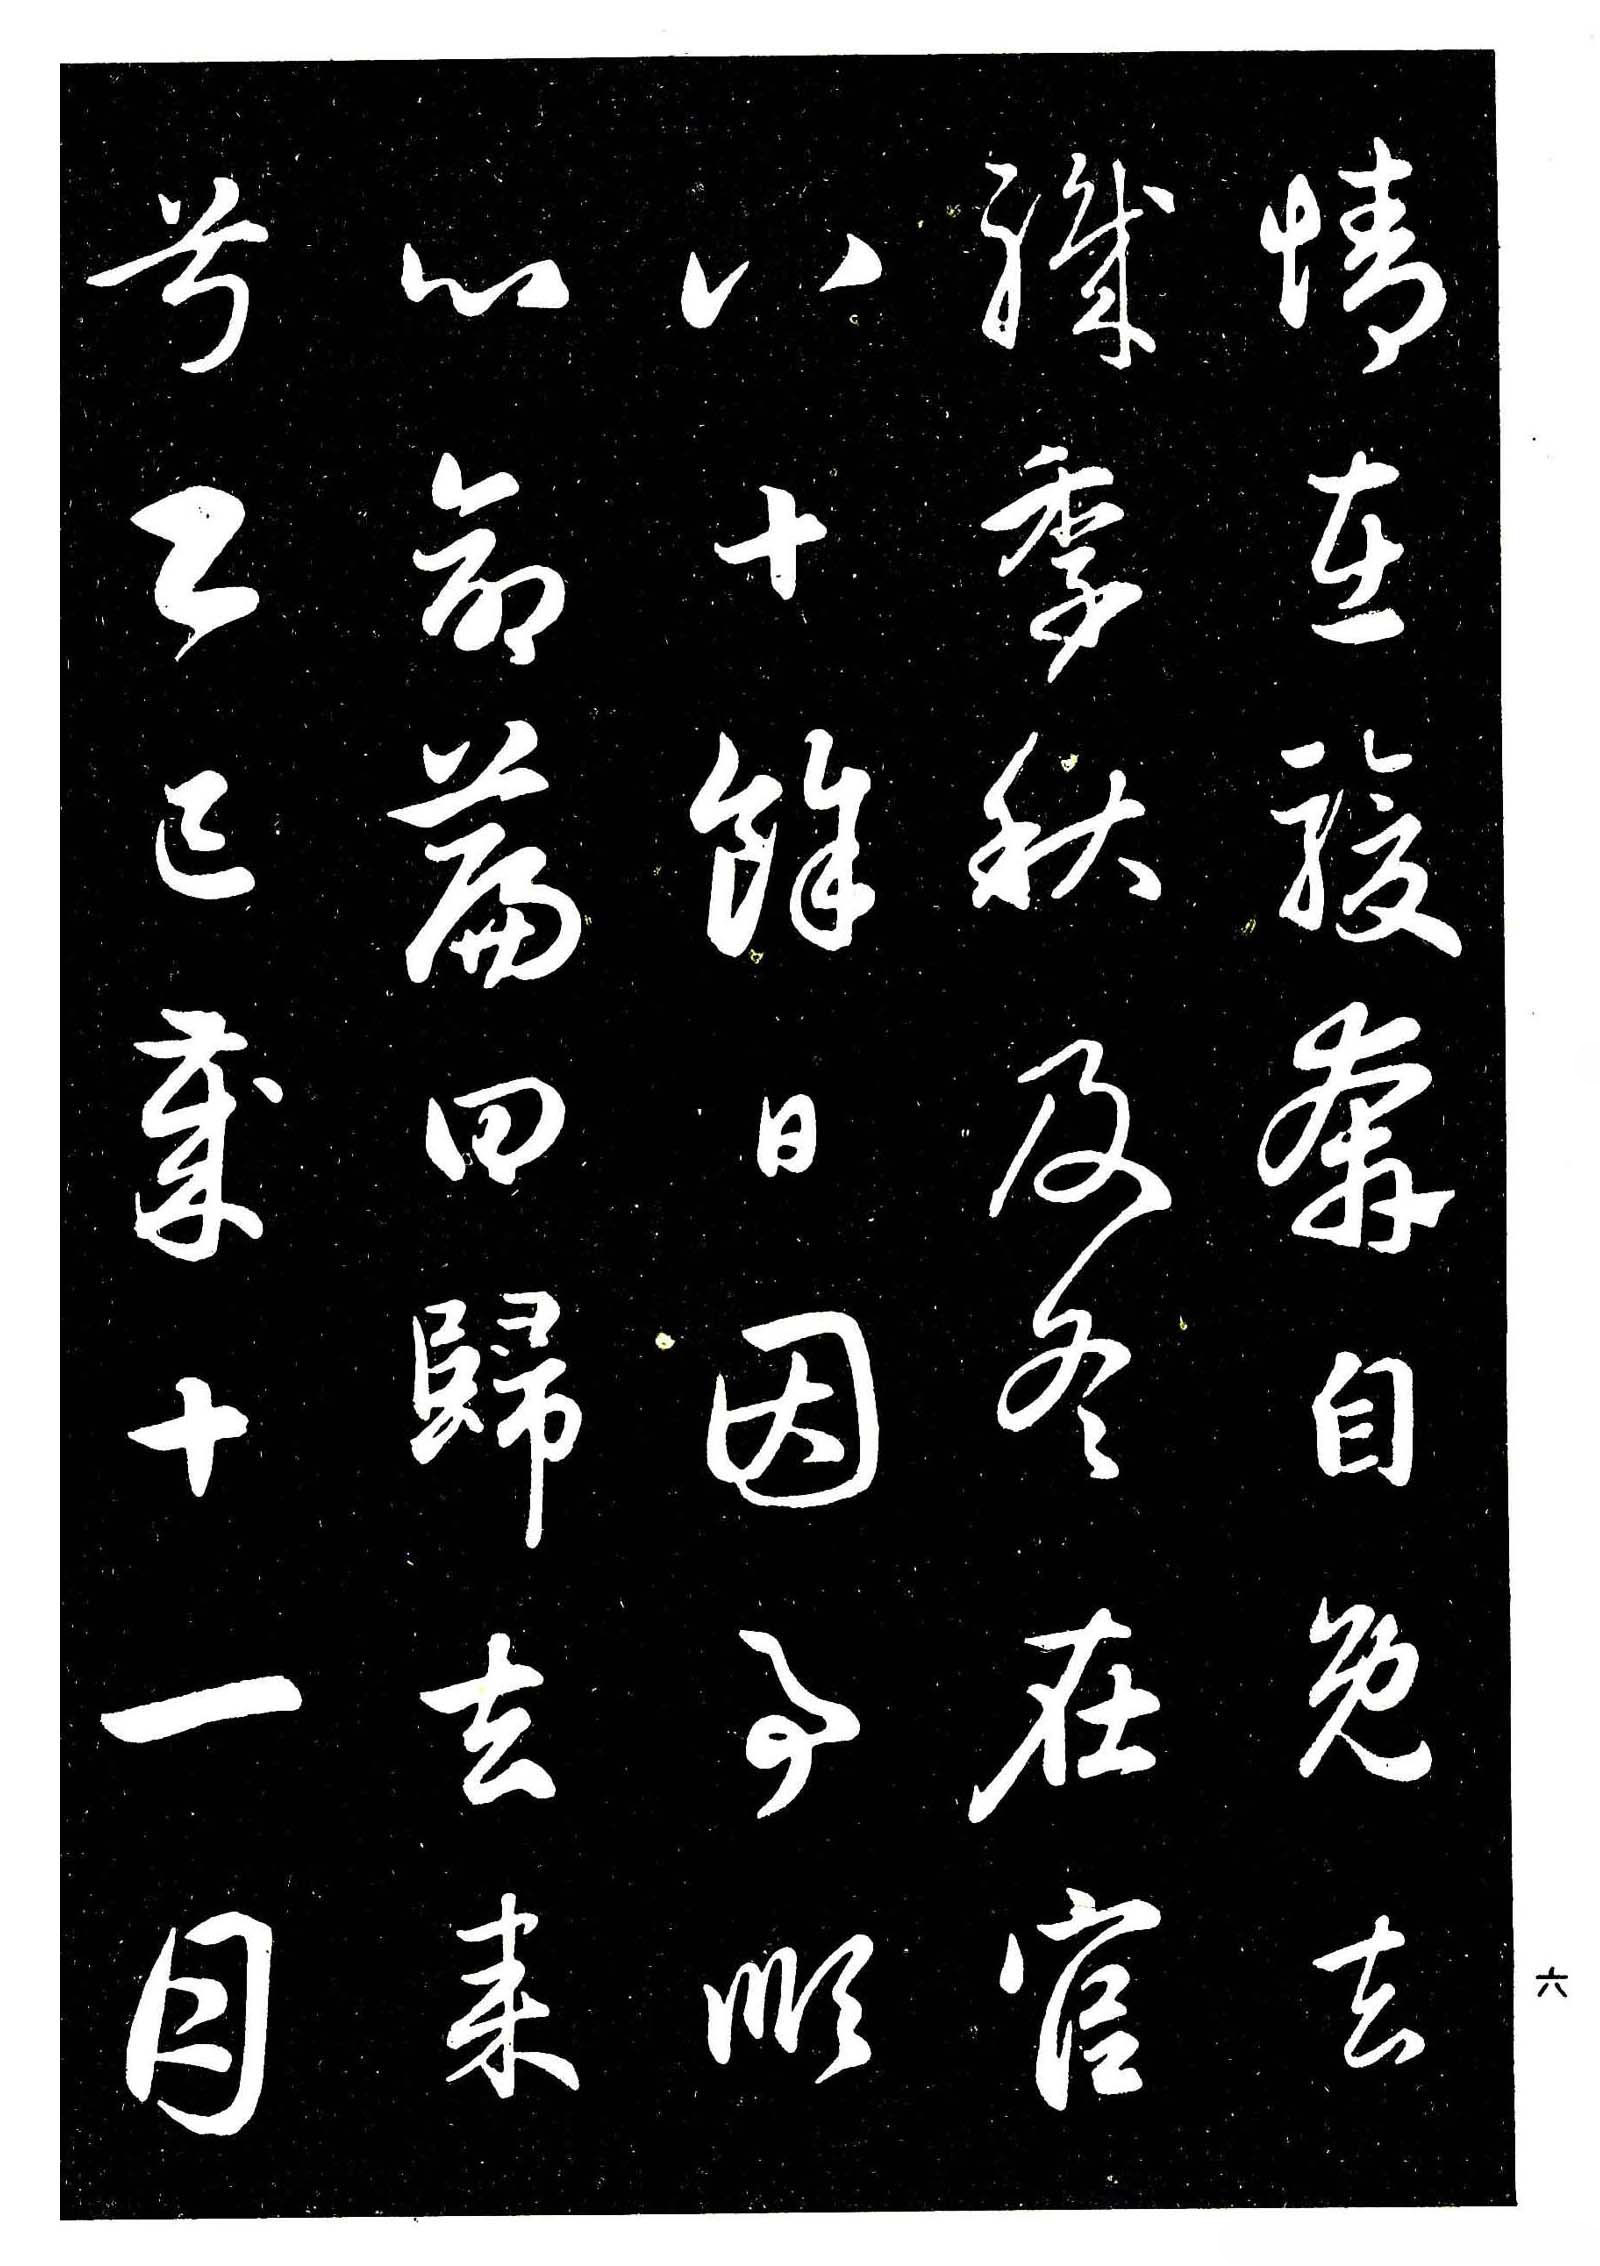 情在駿奔自免去
職季秋及冬在官
八十餘日因事順
心命篇曰歸去來
兮乙巳歲十一月
六